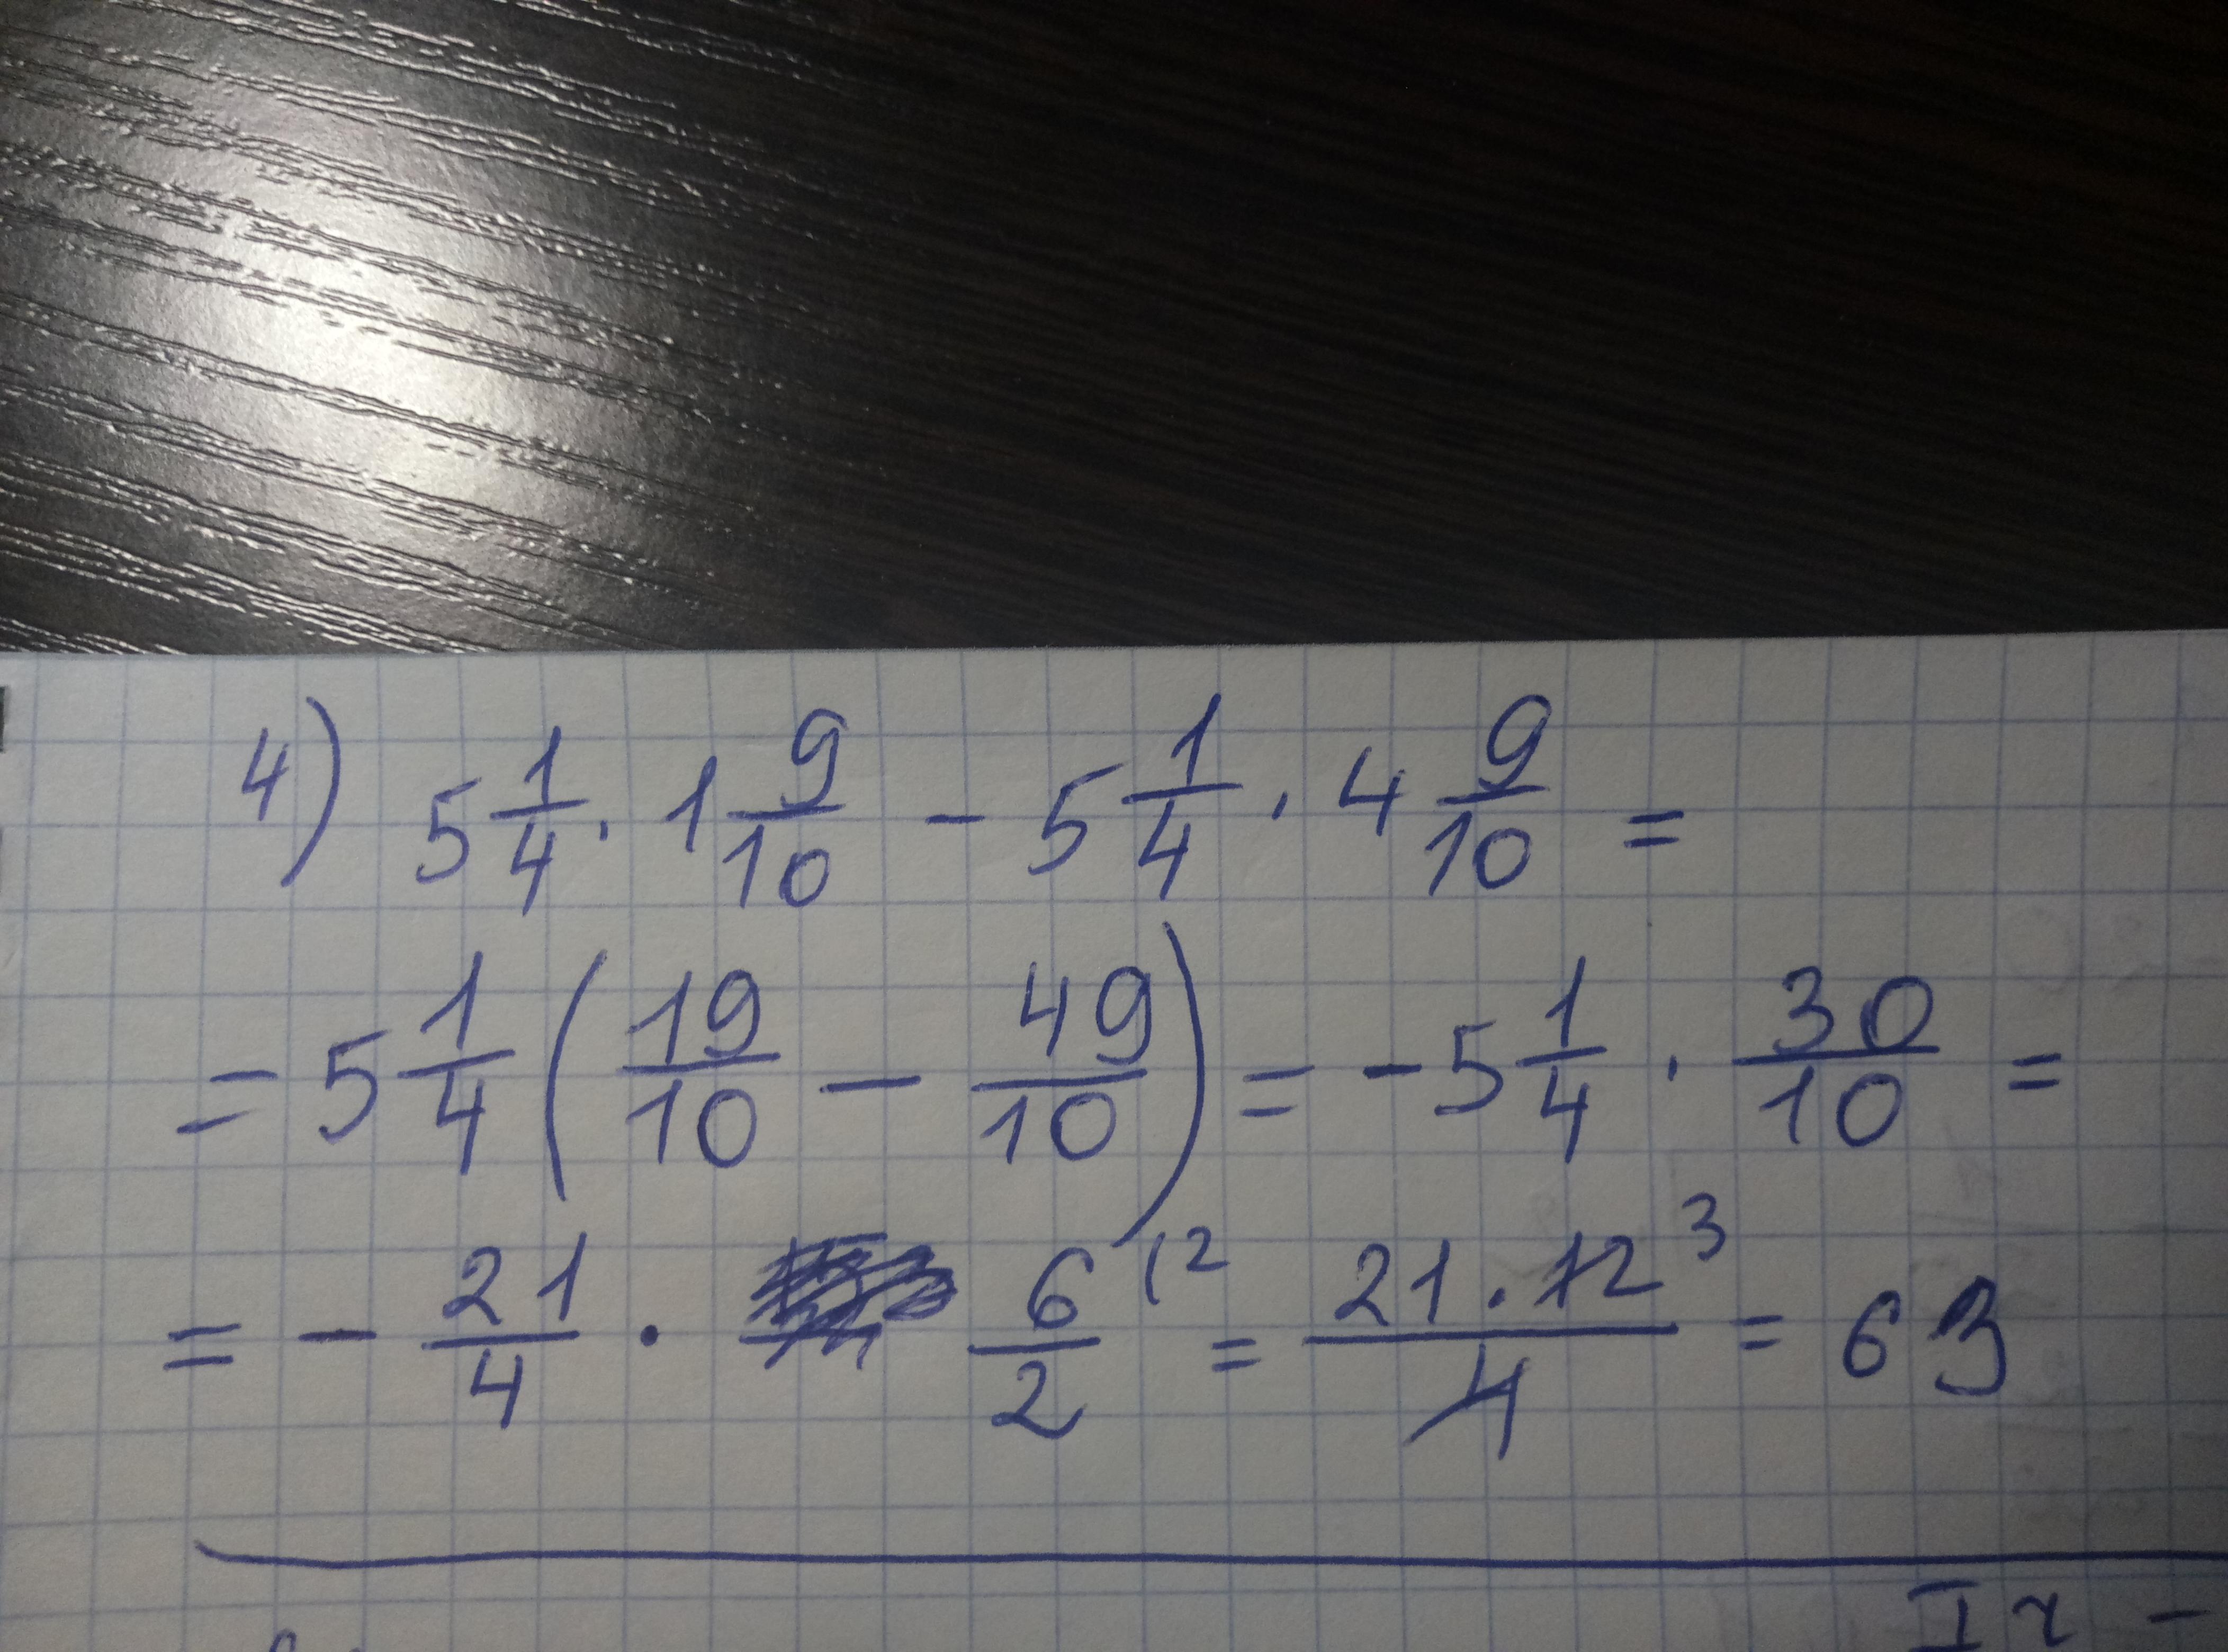 4) 5 1/4 · 1 9/10 - 5 1/4 · 4 9/10 =
= 5 1/4 (19/10 - 49/10) = - 5 1/4 · 30/10 =
= - 21/4 · 6/2 (2 = 21 · 12 3/4 = 63